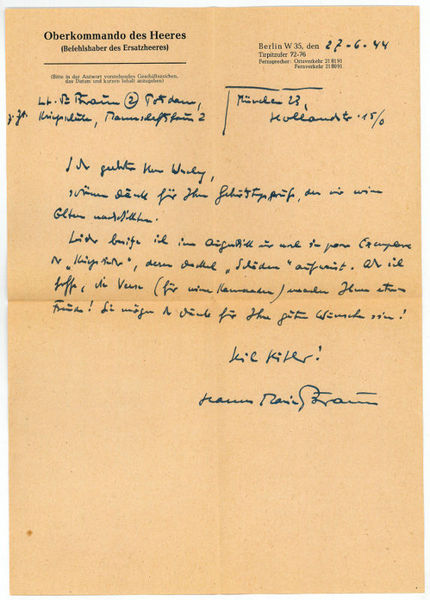 Oberkommando des Heeres
(Befehlshaber des Ersatzheeres)
(Bitte in der Antwort vorstehendes Geschäftszeichen,
das Datum und kurzen Inhalt anzugeben)
Berlin W 35, den 27-6-44
Tirpitzufer 72-76
Fernsprecher: Ortsverkehr 21 81 91
Fernverkehr 21 80 91
Lt. Braun (2) Potsdam,
z. Zt. Kriegsschule,
München 23,
Hollandstr. 15/0
Sehr geehrter Herr
schönen Dank für Ihre Geburtstagsgrüße, die mir meine
Eltern nachschickten.
Leider besitze ich im Augenblick nur noch ein paar Exemplare
der deren Deckel "Schäden" aufweist. Aber ich
hoffe, die Verse (für meine Kameraden) machen Ihnen etwas
Freude! Sie mögen der Dank für Ihre guten Wünsche sein!
Heil Hitler!
Hanns Maria Braun